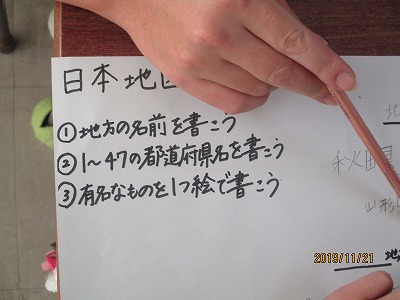 日本地
①地方の名前を書こう
②1～47の都道府県名を書こう
③有名なものを1つ絵で書こう
北
秋田県
山形
地
2019/11/21